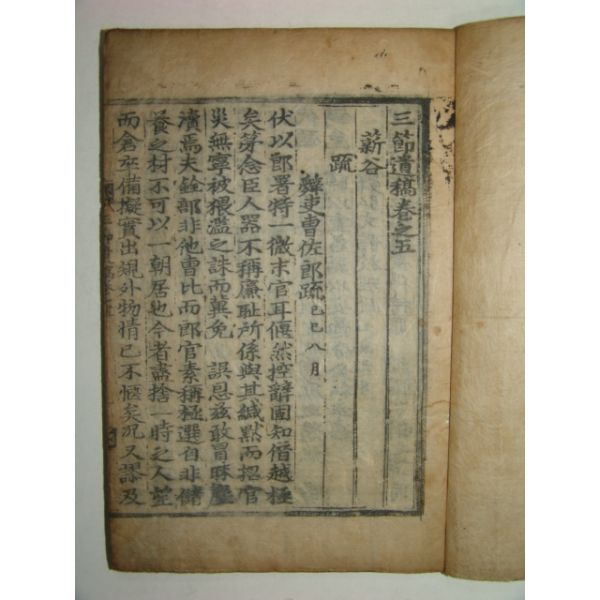 三節遺稿卷之五
薪谷
疏
辭吏曹佐郎疏 己巳八月
伏以郎署特一微末官耳偃然控辭固知僭越極
矣茅念臣人器不稱廉恥所係與其緘默而招官
災無寧被猥濫之誅而冀免 誤恩玆敢冒昧塵
瀆焉夫銓部非他曹比而郎官素稱極選自非儲
養之材不可以一朝居也今者盡捨一時之人望
而倉卒備擬實出規外物情已不愜矣况又謬及